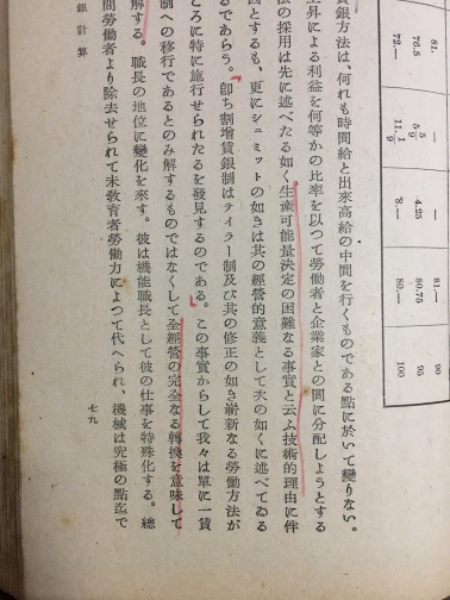 81.
76.5
72.—
—
5 5/9
11. 1/9
—
4.25
8.—
81—
80.75
80.—
90
95
100
賃銀方法は、何れも時間給と出來高給の中間を行くものである點に於いて變りない。
上昇による利益を何等かの比率を以つて勞働者と企業家との間に分配しようとする
の採用は先に述べたる如く生産可能量決定の困難なる事實と云ふ技術的理由に伴
とするも、更にシュミットの如きは其の經營的意義として次の如くに述べてゐる
であらう。「卽ち割增賃銀制はテイラー制及び其の修正の如き嶄新なる勞働方法が
ころに特に施行せられたるを發見するのである。」この事實からして我々は單に一賃
制への移行であるとのみ解するものではなくして全經營の完全なる轉換を意味して
解する。職長の地位に變化を來す。彼は機能職長として彼の仕事を特殊化する。總
間勞働者より除去せられて未敎育者勞働力によつて代へられ、機械は究極の點迄で
銀計算
七九